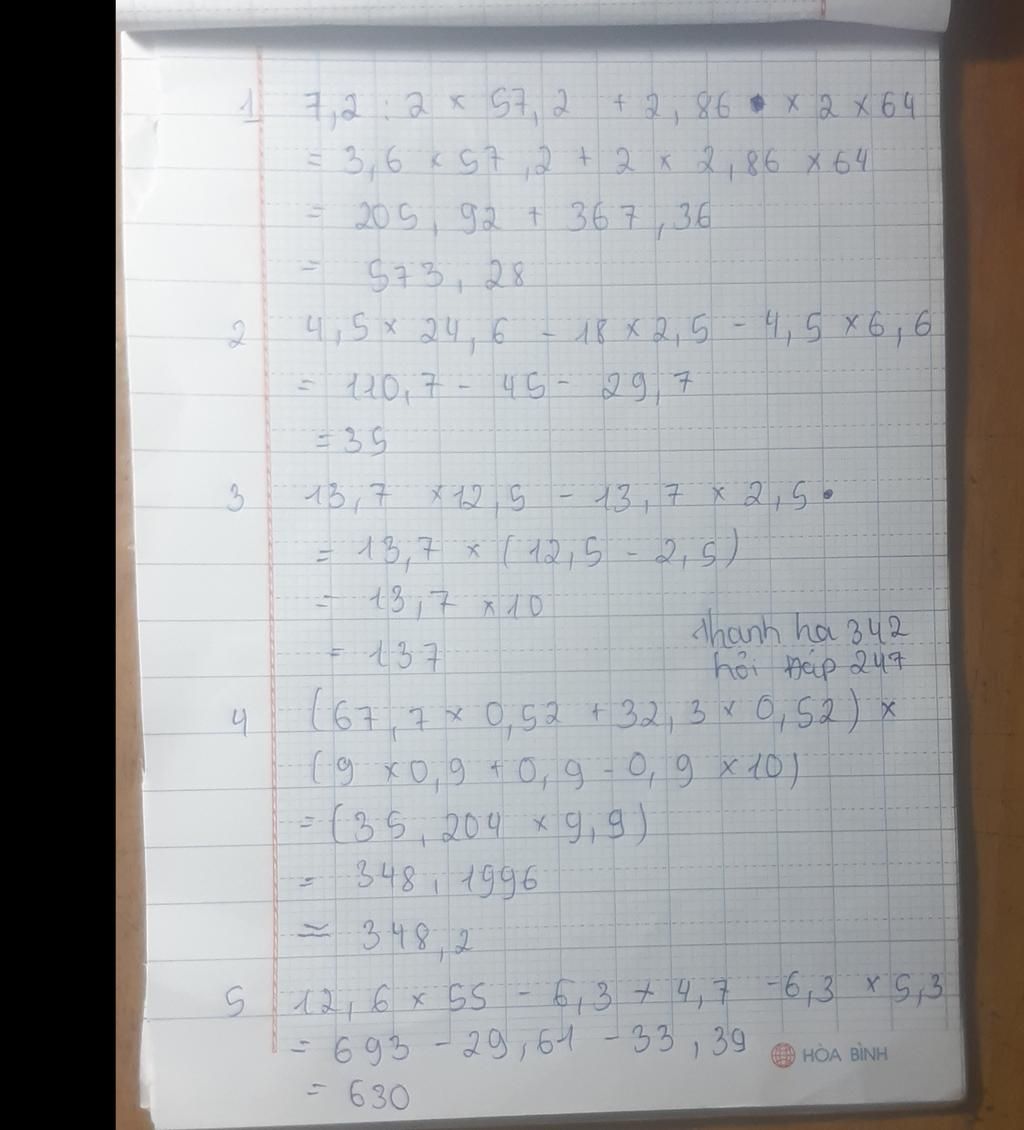 1 7,2 : 2 × 57,2 + 2,86 × 2 × 64
= 3,6 × 57,2 + 2 × 2,86 × 64
= 205,92 + 367,36
= 573,28
2 4,5 × 24,6 - 18 × 2,5 - 4,5 × 6,6
= 110,7 - 45 - 29,7
= 35
3 13,7 × 12,5 - 13,7 × 2,5
= 13,7 × (12,5 - 2,5)
= 13,7 × 10
= 137
thanh ha 342
hỏi Đáp 247
4 (67,7 × 0,52 + 32,3 × 0,52) ×
(9 × 0,9 + 0,9 - 0,9 × 10)
= (35,204 × 9,9)
= 348,1996
≃ 348,2
5 12,6 × 55 - 6,3 × 4,7 - 6,3 × 5,3
= 693 - 29,61 - 33,39
= 630
HÒA BÌNH